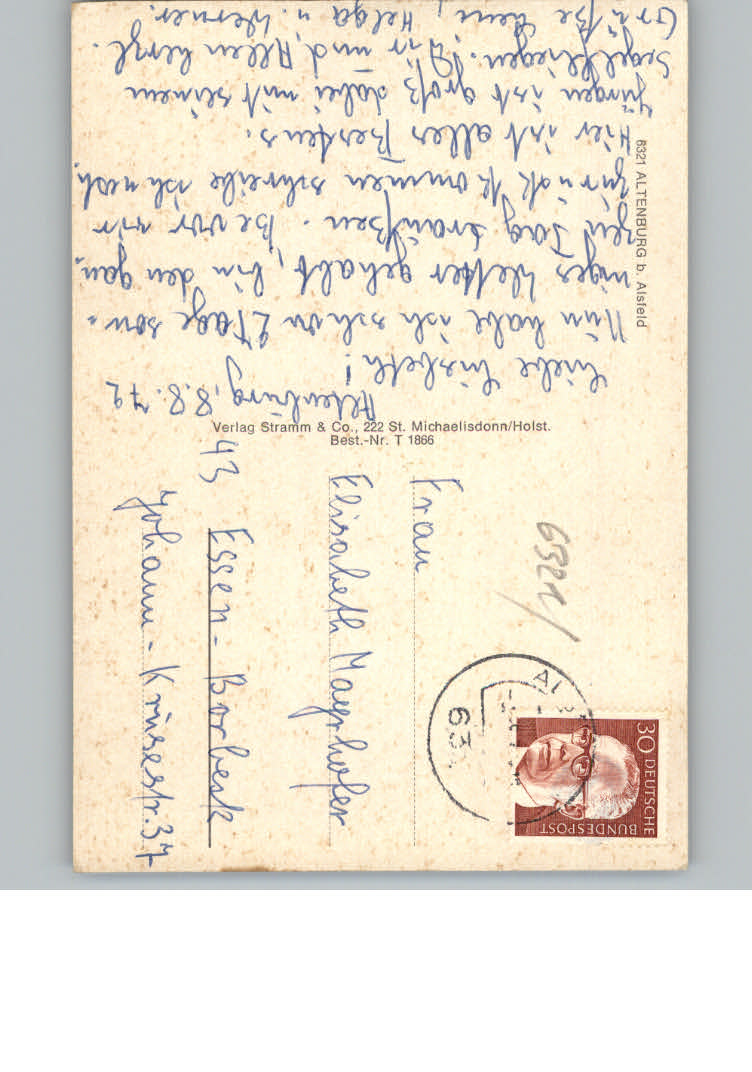 Altenburg, 8.8.72
Liebe Lisbeth!
Nun habe ich schon 2 Tage son-
niges Wetter gehabt, bin den gan,
zen Tag draußen. Bevor wir
zurück kommen schreibe ich noch.
Hier ist alles Bestens.
Jürgen ist groß dabei mit seinem
Segelfliegen. Dir und Allen herzl.
Grüße Leni, Helga u. Werner.
6321 ALTENBURG b. Alsfeld
Verlag Stramm & Co., 222 St. Michaelisdonn/Holst.
Best.-Nr. T 1866
Frau
Elisabeth Mayrhofer
43 Essen-Borbeck
Johann-Krusestr. 37
6321/
63
30 DEUTSCHE
BUNDESPOST